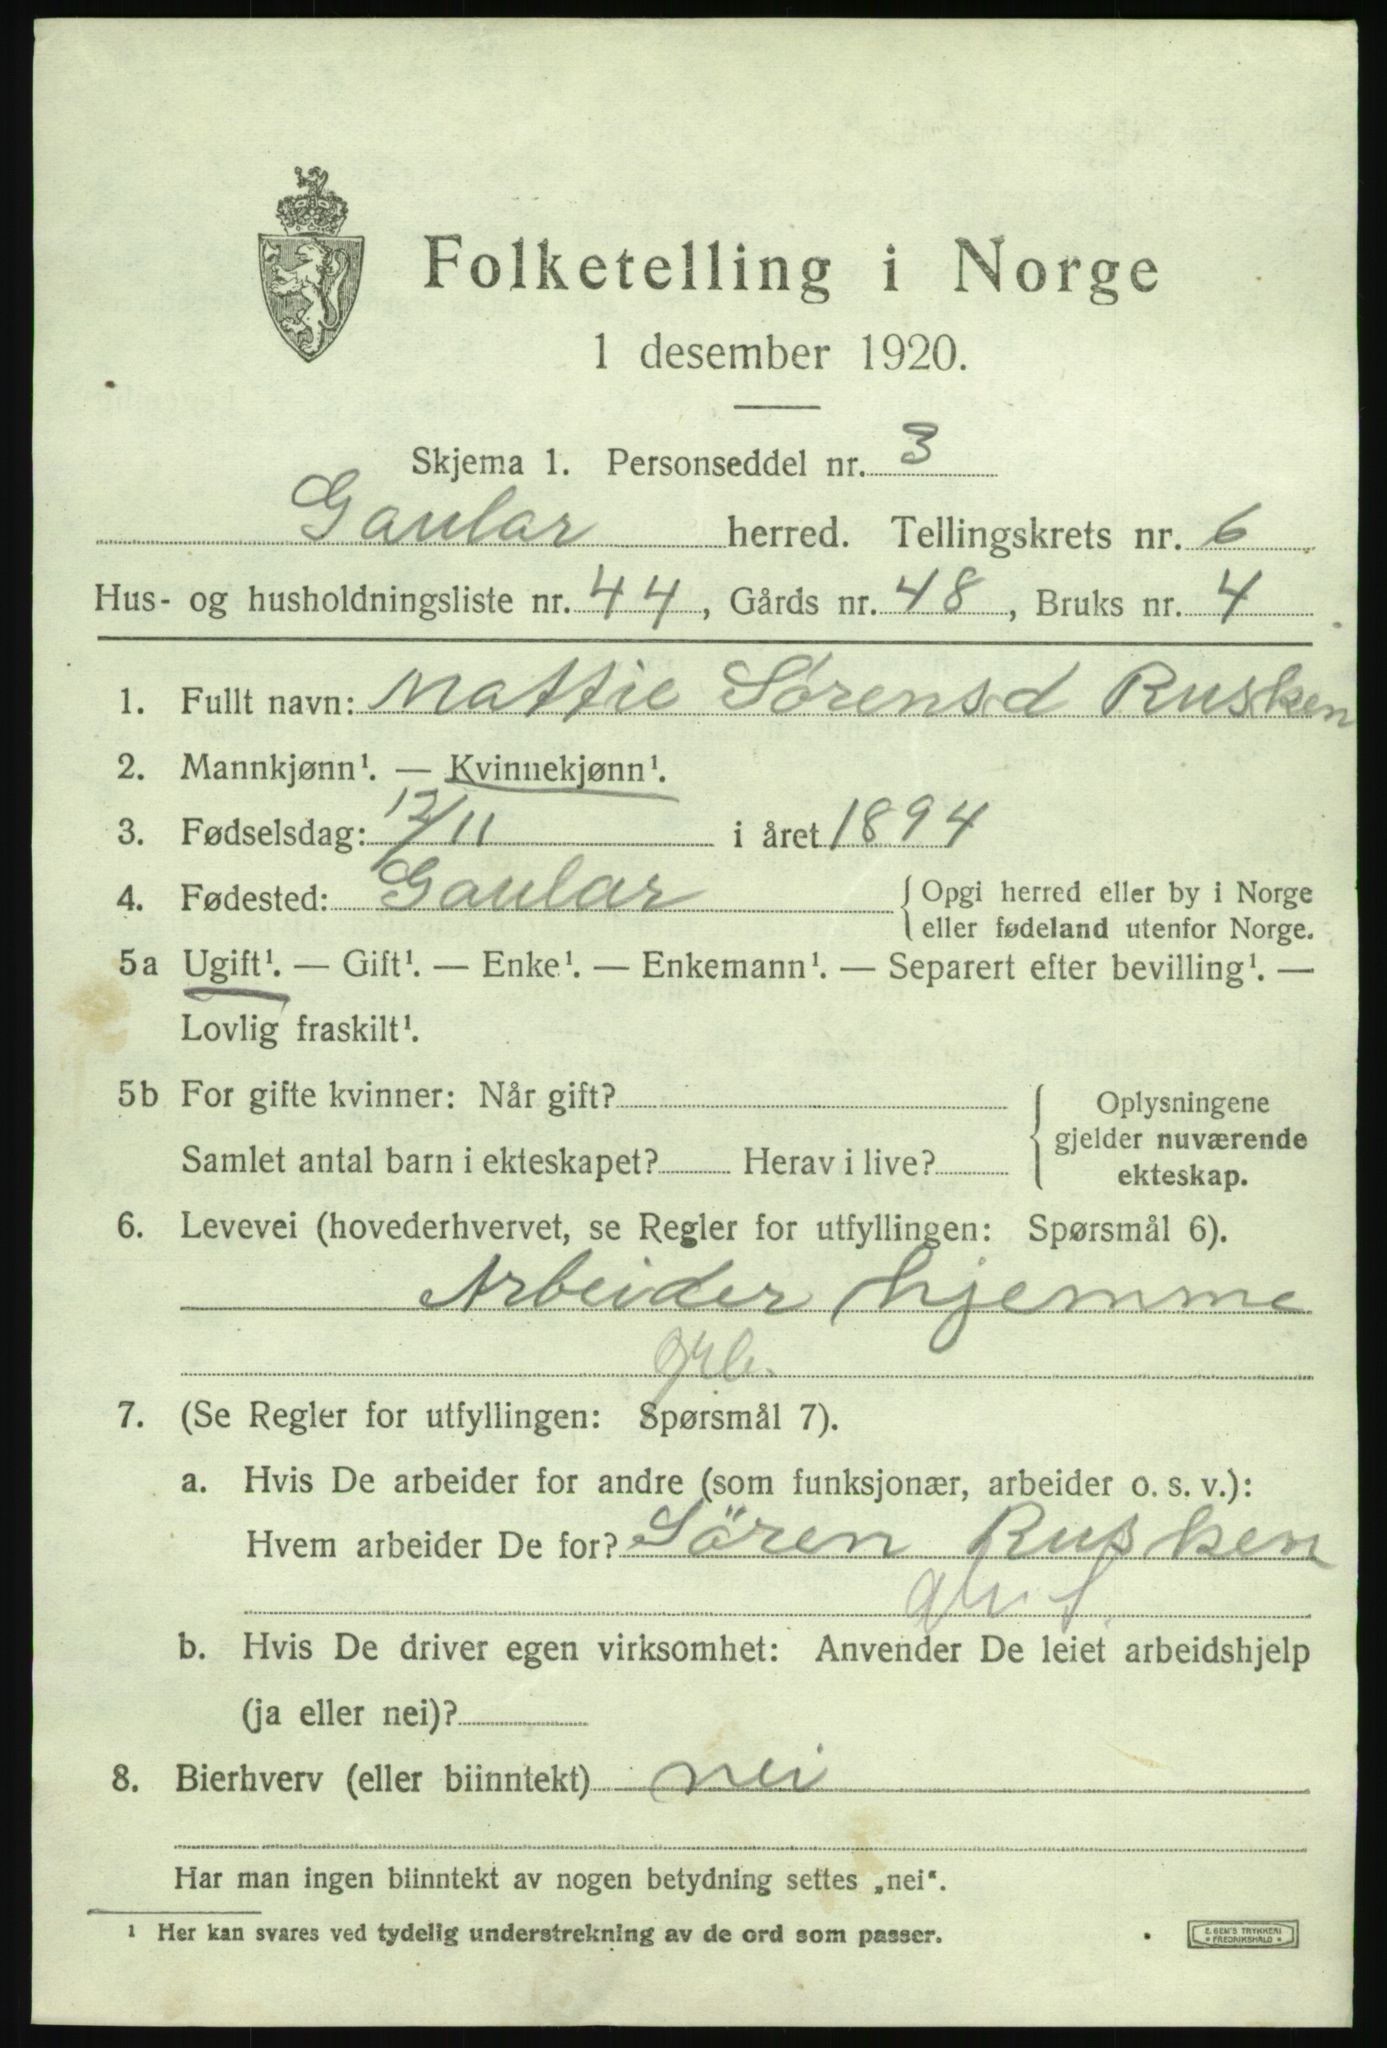 Folketelling i Norge
1 desember 1920.
Skjema 1. Personseddel nr. 3
Gaular herred. Tellingskrets nr. 6
Hus- og husholdningsliste nr. 44, Gårds nr. 48, Bruks nr. 4
1. Fullt navn: Mattie Sørensd Rusken
2. Mannkjønn¹. — Kvinnekjønn¹.
3. Fødselsdag: 12/11 i året 1894
4. Fødested: Gaular { Opgi herred eller by i Norge
eller fødeland utenfor Norge.
5a Ugift¹. — Gift¹. — Enke¹. — Enkemann¹. — Separert efter bevilling¹. —
Lovlig fraskilt¹.
5b For gifte kvinner: Når gift?
Samlet antal barn i ekteskapet? Herav i live?
Oplysningene
gjelder nuværende
ekteskap.
6. Levevei (hovederhvervet, se Regler for utfyllingen: Spørsmål 6).
Arbeider hjemme
7. (Se Regler for utfyllingen: Spørsmål 7).
a. Hvis De arbeider for andre (som funksjonær, arbeider o. s. v.):
Hvem arbeider De for? Sören Rusken
b. Hvis De driver egen virksomhet: Anvender De leiet arbeidshjelp
(ja eller nei)?
8. Bierhverv (eller biinntekt) nei
Har man ingen biinntekt av nogen betydning settes „nei".
¹ Her kan svares ved tydelig understrekning av de ord som passer.
E. SEM'S TRYKKERI
* FREDRIKSHALD *